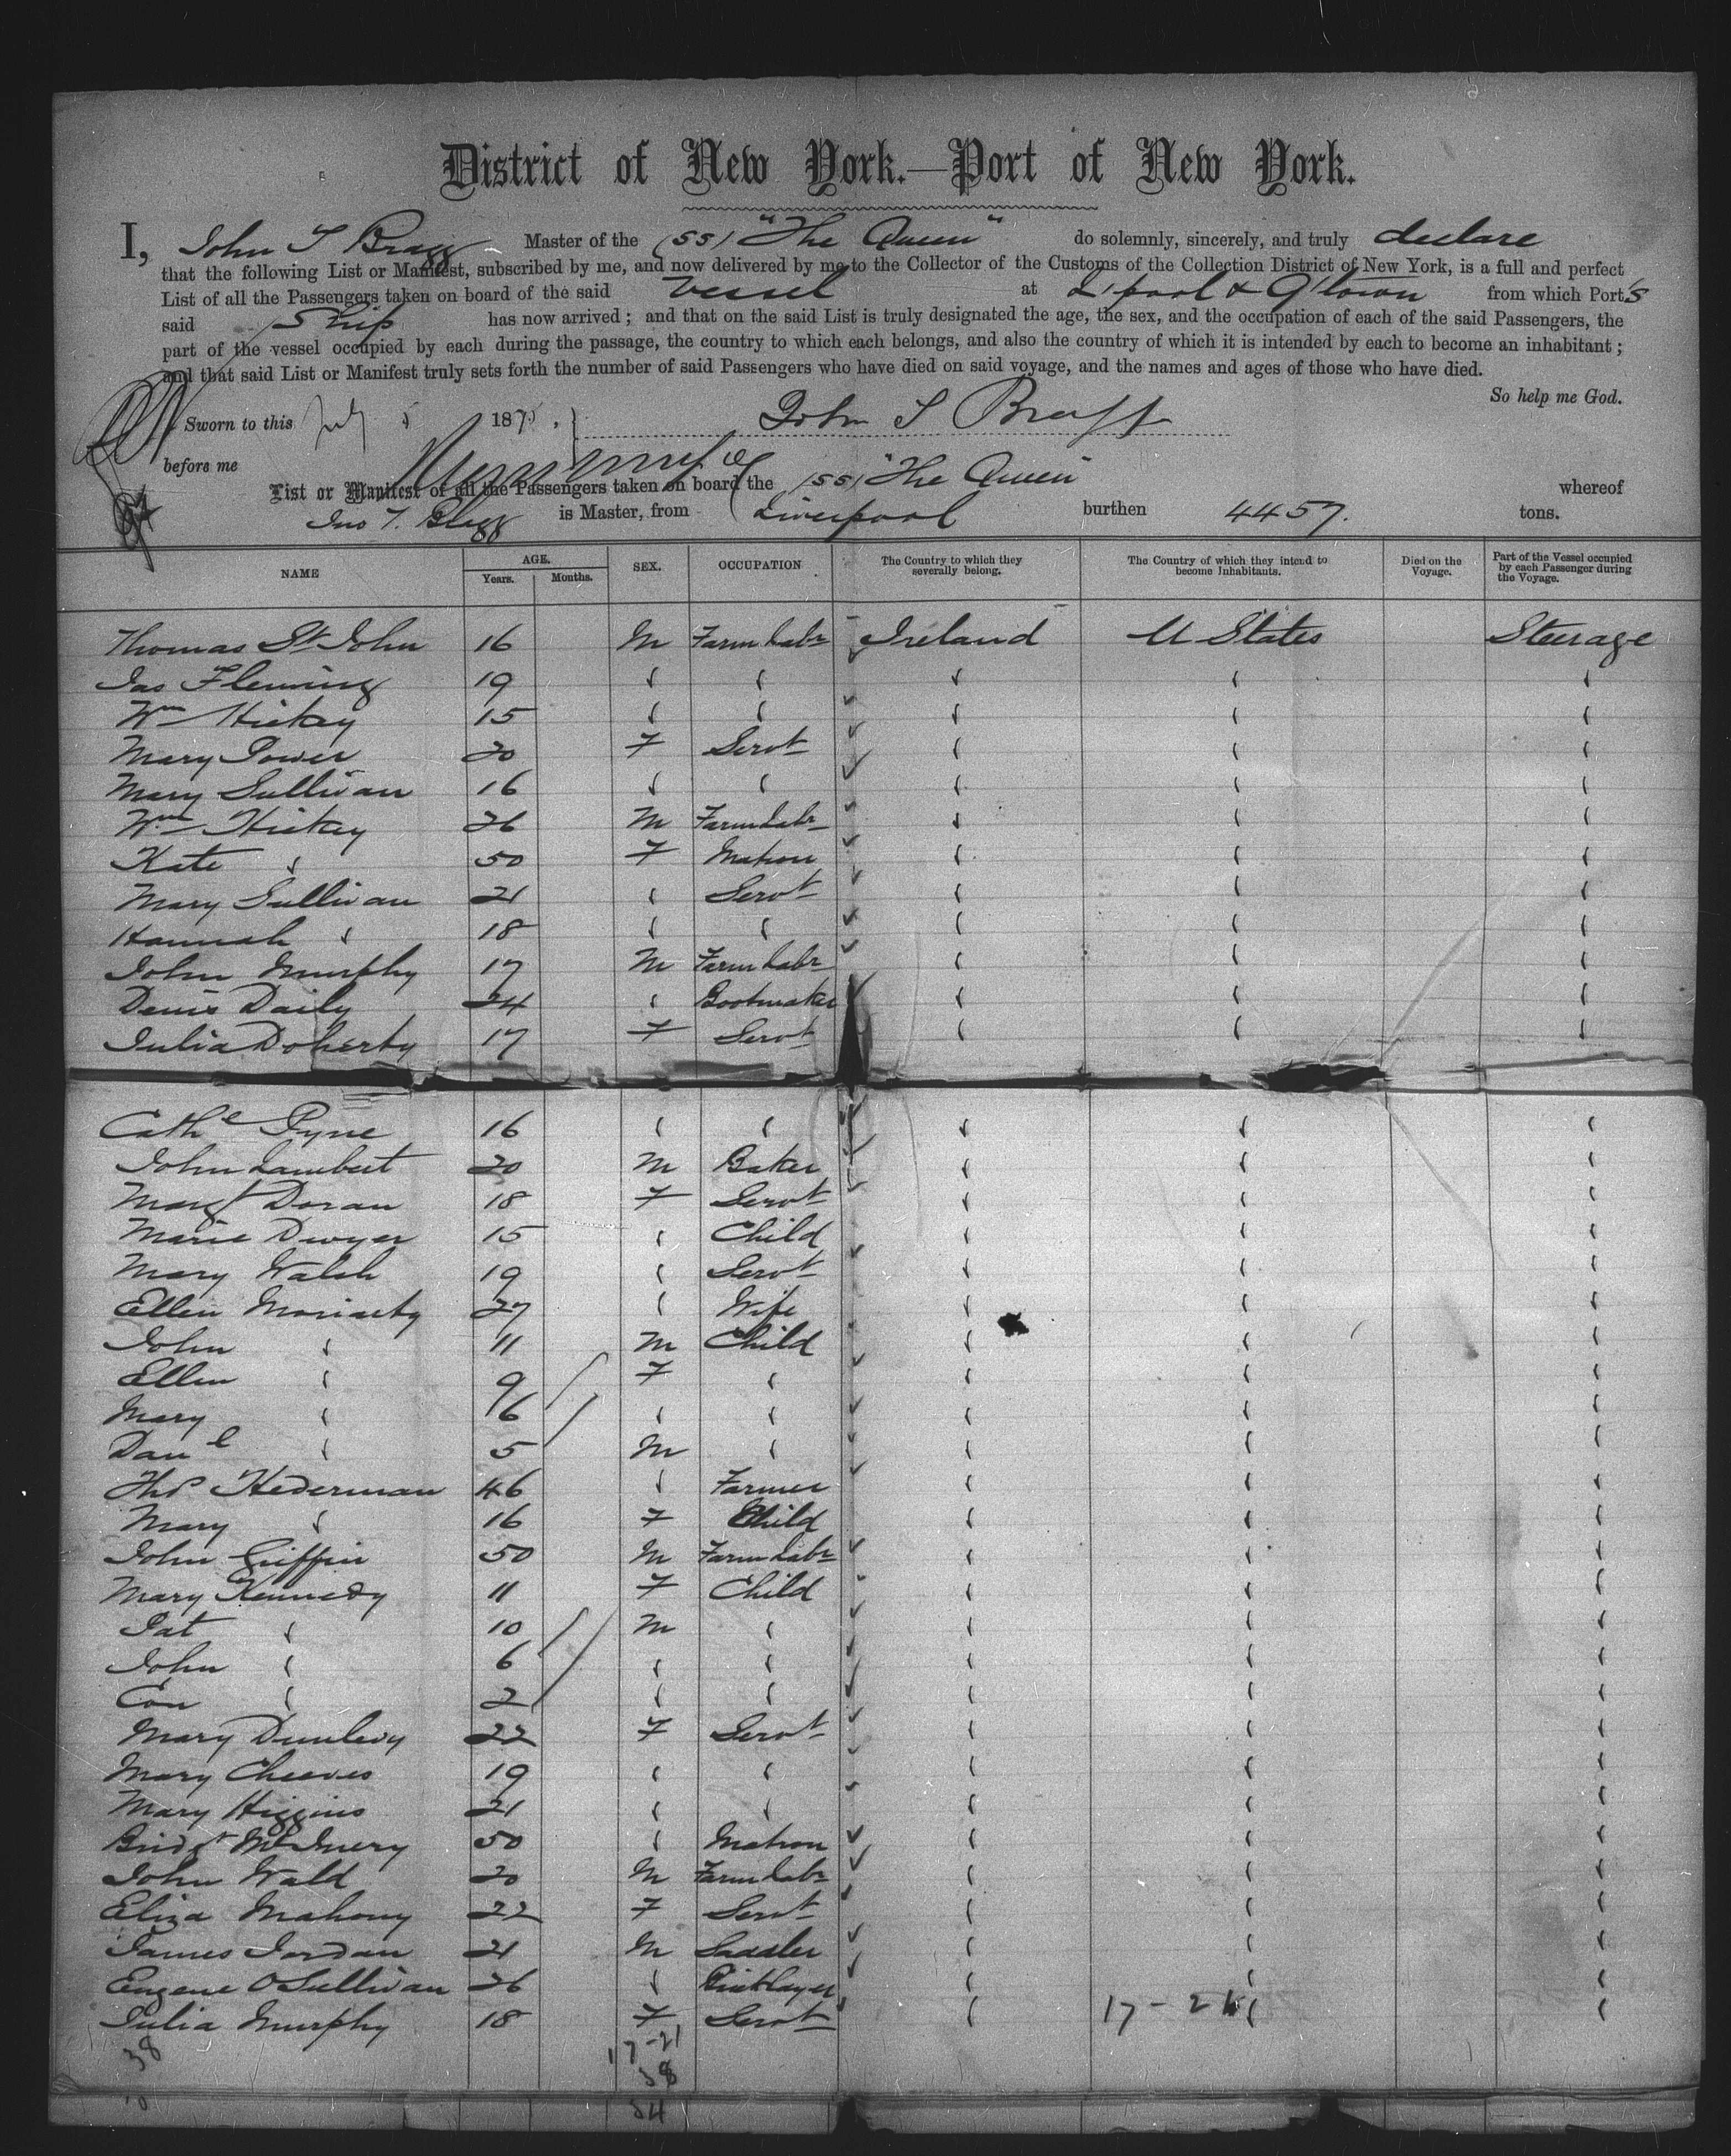 District of New York.—Port of New York.
I, John T Bragg Master of the (SS) "The Queen" do solemnly, sincerely, and truly declare
that the following List or Manifest, subscribed by me, and now delivered by me to the Collector of the Customs of the Collection District of New York, is a full and perfect
List of all the Passengers taken on board of the said Vessel at L'pool & Q'town from which Port's
said Ship has now arrived; and that on the said List is truly designated the age, the sex, and the occupation of each of the said Passengers, the
part of the vessel occupied by each during the passage, the country to which each belongs, and also the country of which it is intended by each to become an inhabitant;
and that said List or Manifest truly sets forth the number of said Passengers who have died on said voyage, and the names and ages of those who have died.
So help me God.
Sworn to this July 5 1875. John T Bragg
before me
List or Manifest of all the Passengers taken on board the (SS) "The Queen" whereof
Jno T. Bragg is Master, from Liverpool burthen 4457. tons.
NAME AGE. Years. Months. SEX. OCCUPATION The Country to which they severally belong. The Country of which they intend to become Inhabitants. Died on the Voyage. Part of the Vessel occupied by each Passenger during the Voyage.
Thomas St John 16 M Farm Labr Ireland U States Steerage
Jas Fleming 19 " " " " "
Wm Hickey 15 " " " " "
Mary Power 20 F Servt " " "
Mary Sullivan 16 " " " " "
Wm Hickey 26 M Farm Labr " " "
Kate " 50 F Matron " " "
Mary Sullivan 21 " Servt " " "
Hannah " 18 " " " " "
John Murphy 17 M Farm Labr " " "
Denis Daily 24 " Bootmaker " " "
Julia Doherty 17 F Servt " " "
Cathe Pyne 16 " " " " "
John Lambert 20 M Baker " " "
Margt Doran 18 F Servt " " "
Marie Dwyer 15 " Child " " "
Mary Walsh 19 " Servt " " "
Ellen Moriarty 27 " Wife " " "
John " 11 M Child " " "
Ellen " 9 F " " " "
Mary " 6 " " " " "
Danl " 5 M " " " "
Thos Hederman 46 " Farmer " " "
Mary " 16 F Child " " "
John Griffin 50 M Farm Labr " " "
Mary Kennedy 11 F Child " " "
Pat " 10 M " " " "
John " 6 " " " " "
Con " 2 " " " " "
Mary Dunlevy 22 F Servt " " "
Mary Cheeves 19 " " " " "
Mary Higgins 21 " " " " "
Bridgt McInery 50 " Matron " " "
John Wald 20 M Farm Labr " " "
Eliza Mahony 22 F Servt " " "
James Jordan 21 M Saddler " " "
Eugene O'Sullivan 26 " Bricklayer " " "
Julia Murphy 18 F Servt " 17-21 " "
38 17-21
38
54